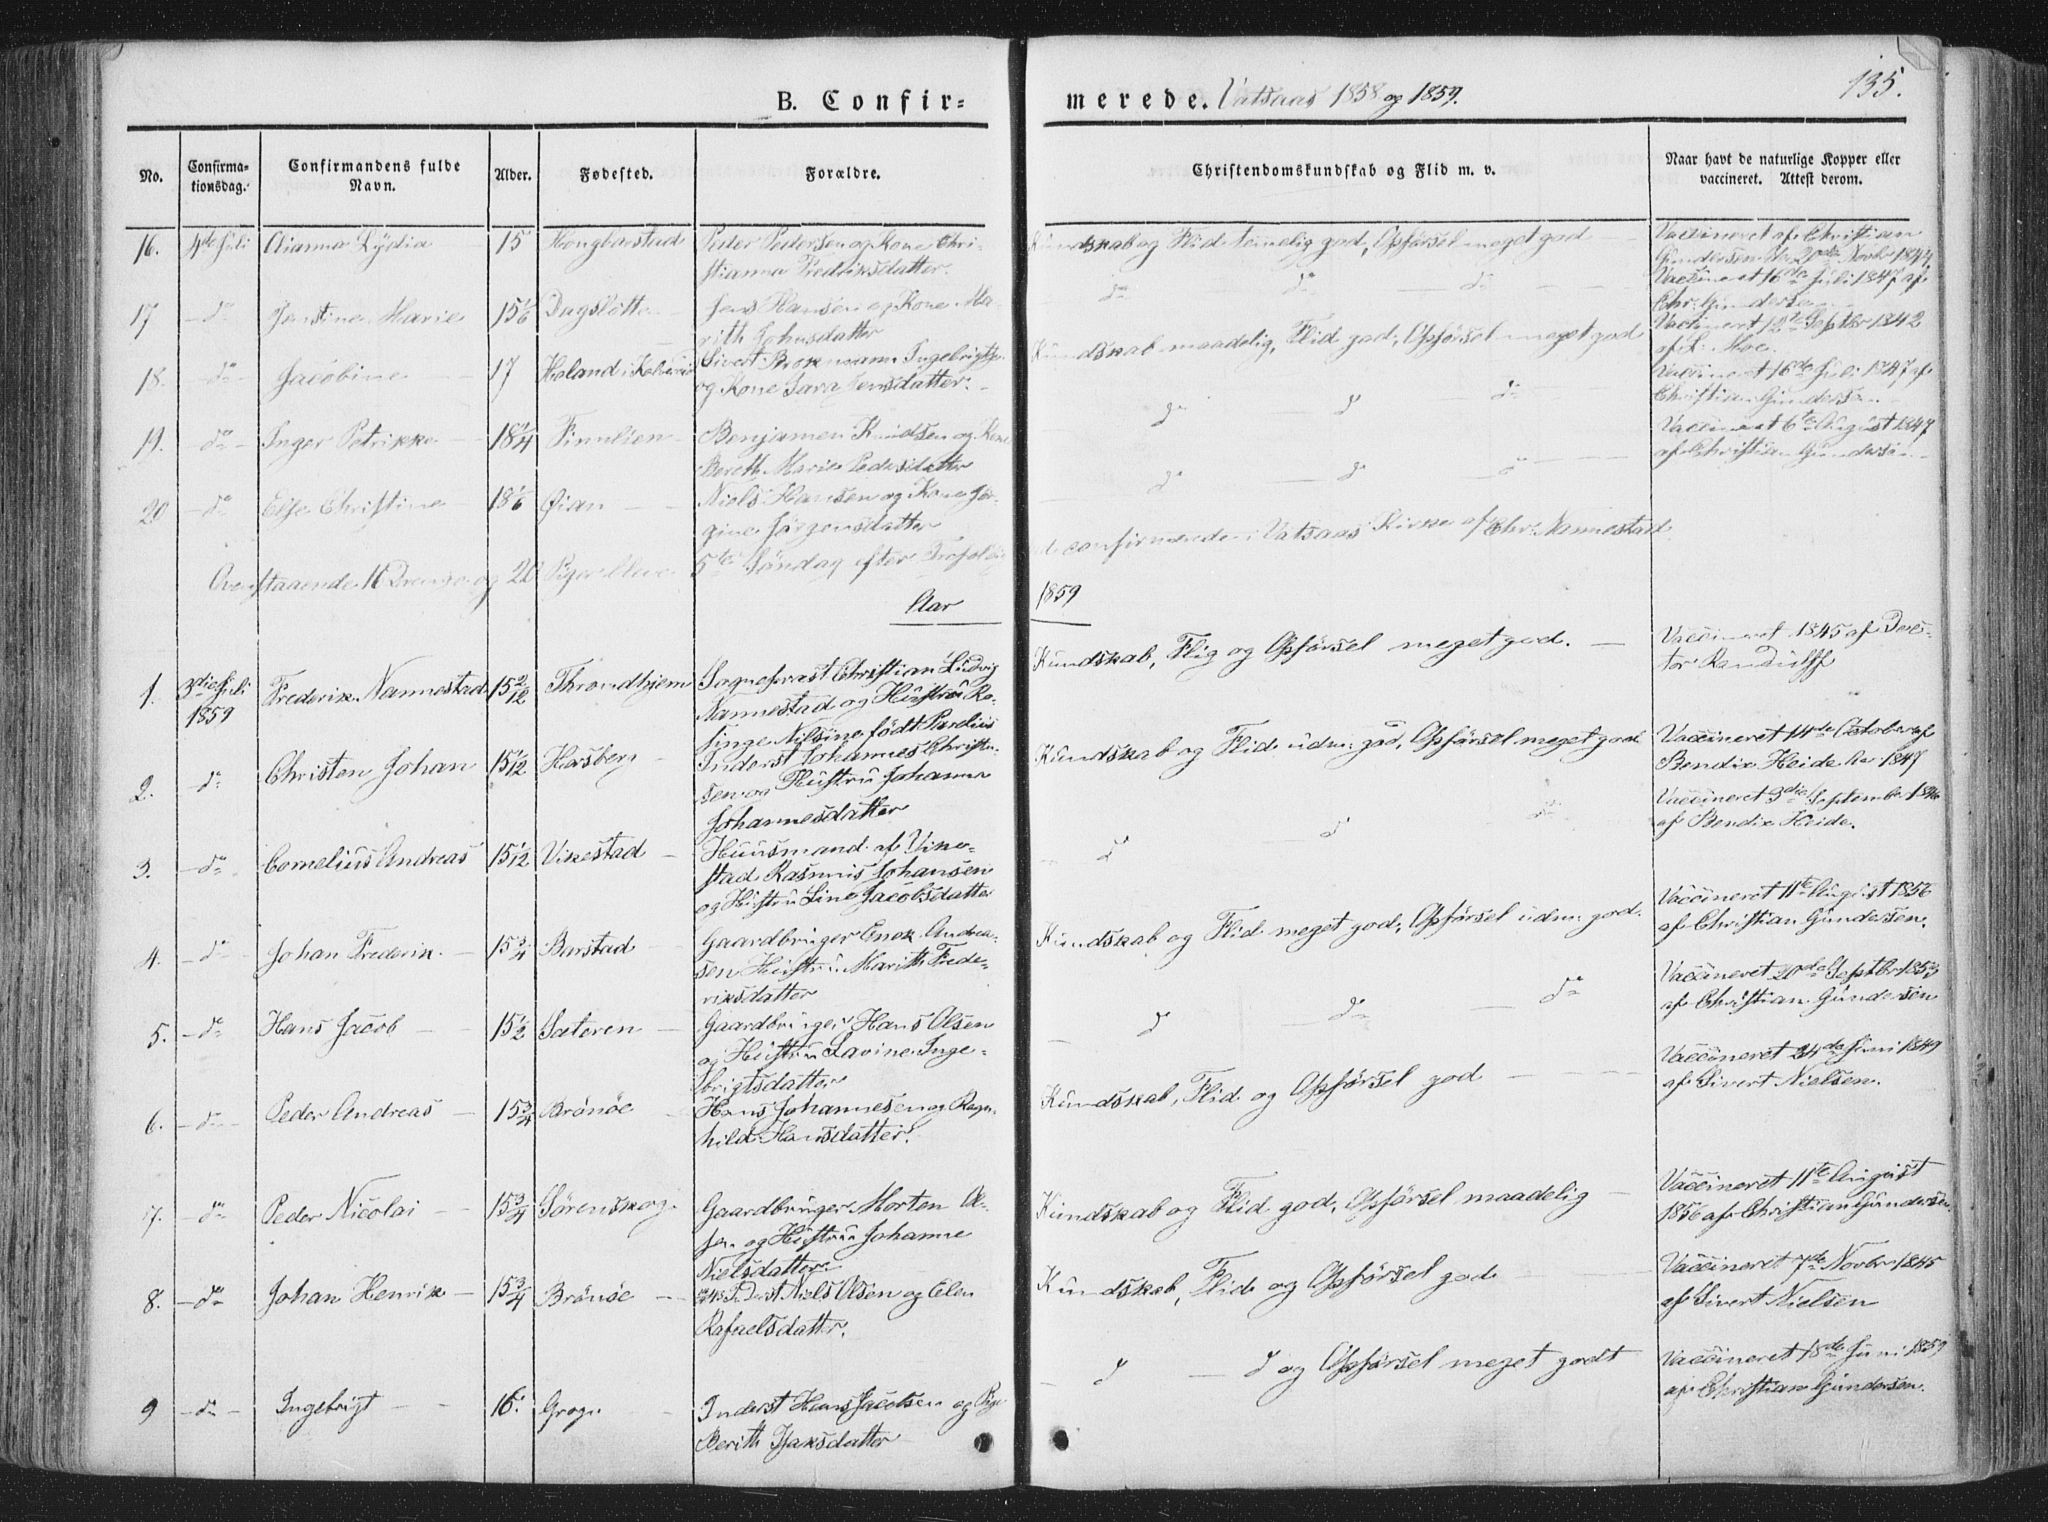 B. Confirmerede. Vatsaas 1858 og 1859.
135.
No.
Confirmationsdag.
Confirmandens fulde Navn.
Alder.
Fødested.
Forældre.
Christendomskundskab og Flid m. v.
Naar havt de naturlige Kopper eller vaccineret. Attest derom.
16. 4de Juli Lydia 15 Peder Pedersen og Kone Chri-
stianna Fredriksdatter.
Kundskab og Flid temmelig god, Opførsel meget god
Vaccineret af Christian
Gundersen 20de Novbr 1844
17 do Justine Marie 15 1/6 Dagslotte Jens Hansen og Kone Ma-
rith Johnsdatter
do do do
Vaccineret 16de Juli 1847 af
Chr. Gundersen
18. do Jacobine 17 Holand i Sivert Ingebrigts.
og Kone Sara Jensdatter.
Kundskab maadelig, Flid god, Opførsel meget god
Vaccineret 12te Septbr 1842
af L. Moe.
19. do Inger Petrikke 18 1/4 Finnlien Benjamen Knudsen og Kone
Bereth Marie Pedersdatter
do do do
Vaccineret 16de Juli 1847 af
Christian Gundersen
20 do Else Christine 18 1/6 Øian Niels Hansen og Kone Jør-
gine Jørgensdatter
do do do
Vaccineret 6te August 1847
af Christian Gundersen
Ovenstaaende 16 Drenge og 20 Piger bleve 5te Søndag efter confirmerede i Vatsaas Kirke af Chr. Nannestad
Aar 1859
1. 3die Juli
1859
Frederik Nannestad 15 2/12 Throndhjem Sogneprest Christian Ludvig
Nannestad og Hustru
Nilsine født Parelius
Kundskab, Flig og Opførsel meget god.
Vaccineret 1845 af Doc-
tor Randulff
2. do Christen Johan 15 1/12 Horsberg Inderst Johannes Christen-
sen og Hustru Johanna
Johannesdatter
Kundskab og Flid udm. god, Opførsel meget god
Vaccineret 14de October af
Bendix Heide 1847
3. do Cornelius Andreas 15 1/12 Vikestad Huusmand af Vike-
stad Rasmus Johansen
og Hustru Line Jacobsdatter
do do do
Vaccineret 3die September 1846
af Bendix Heide.
4. do Johan Frederik 15 3/4 Barstad Gaardbruger Enok Andrea-
sen Hustru Marith Frede-
riksdatter
Kundskab og Flid meget god, Opførsel udm. god.
Vaccineret 11te August 1856
af Christian Gundersen.
5. do Hans Jacob 15 1/2 Sæteren Gaardbruger Hans Olsen
og Hustru Lavine Inge-
brigtsdatter
do do do
Vaccineret 20de Septbr 1853
af Christian Gundersen
6. do Peder Andreas 15 3/4 Brønøe Hans Johannesen og Ragn-
hild Hansdatter.
Kundskab, Flid og Opførsel god
Vaccineret 24de Juni 1849
af Sivert Nielsen.
7. do Peder Nicolai 15 3/4 Sørenskog Gaardbruger Morten Ol-
sen og Hustru Johanne
Nielsdatter
Kundskab og Flid god, Opførsel maadelig
Vaccineret 11te August
1856 af Christian Gundersen.
8. do Johan Henrik 15 3/4 Brønøe Inderst Niels Olsen og Elen
Rafaelsdatter.
Kundskab, Flid og Opførsel god
Vaccineret 7de Novbr 1845
af Sivert Nielsen
9 do Ingebrigt 16 Inderst Hans Jacobsen og Pige
Berith Isaksdatter
do do og Opførsel meget godt
Vaccineret 18de Juni 1859
af Christian Gundersen.